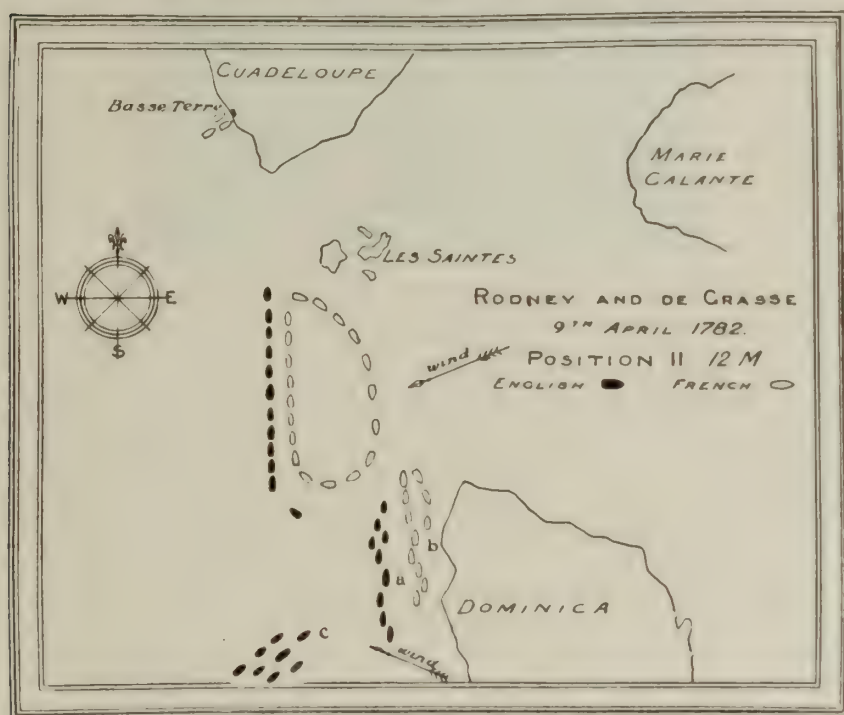 CUADELOUPE
Basse Terre
MARIE
CALANTE
LES SAINTES
W E
S
RODNEY AND DE CRASSE
9TH APRIL 1782.
POSITION II 12 M
wind
ENGLISH FRENCH
b
a
DOMINICA
c
wind